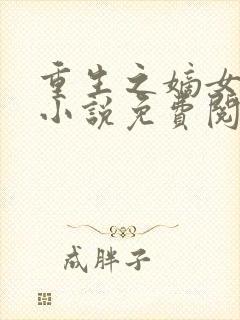 重生之嫡女
小说免費閱
成胖子